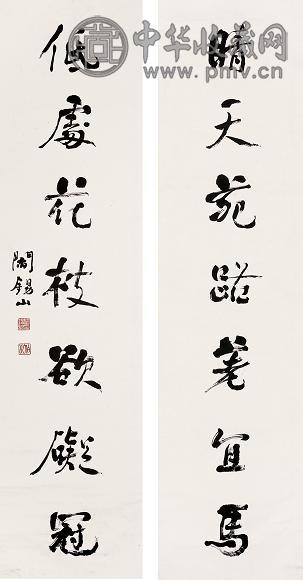 中华收藏网
www.pmv.cn
晴天苑路差宜馬
低處花枝欲礙冠
閻錫山